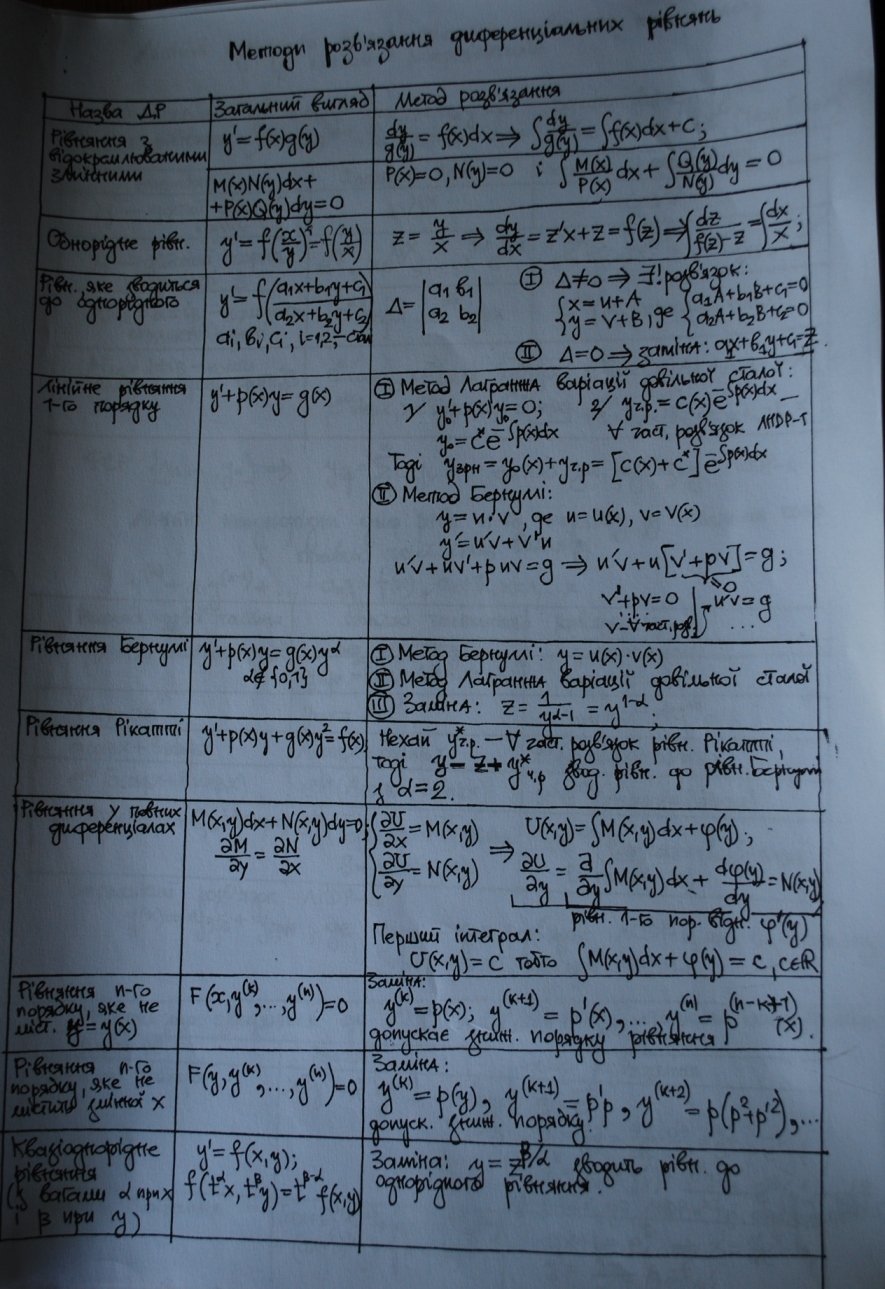 Методи розв'язання диференціальних рівнянь
Назва ДР
Загальний вигляд
Метод розв'язання
Рівняння з
відокремлюваними
змінними
y' = f(x)g(y)
dy/g(y) = f(x)dx ⇒ ∫dy/g(y) = ∫f(x)dx + C;
M(x)N(y)dx+
+P(x)Q(y)dy=0
P(x)=0, N(y)=0 і ∫M(x)/P(x) dx + ∫Q(y)/N(y) dy = 0
Однорідне рівн.
y' = f(x/y) = f(y/x)
z = y/x ⇒ dy/dx = z'x+z = f(z) ⇒ ∫dz/(f(z)-z) = ∫dx/x;
Рівн. яке зводиться
до однорідного
y' = f((a₁x+b₁y+c₁)/(a₂x+b₂y+c₂))
aᵢ, bᵢ, cᵢ, i=1,2,-сталі
Δ = |a₁ b₁|
|a₂ b₂|
Ⓘ Δ≠0 ⇒ ∃! розв'язок:
{x = u+A
{y = v+B, де {a₁A+b₁B+c₁=0
{a₂A+b₂B+c₂=0
Ⓘⓘ Δ=0 ⇒ заміна: a₁x+b₁y+c₁=z.
Лінійне рівняння
1-го порядку
y'+p(x)y = g(x)
Ⓘ Метод Лагранжа варіації довільної сталої:
1/ y₀'+p(x)y₀=0; 2/ yг.р. = c(x)e^(-∫p(x)dx) —
y₀ = c*e^(-∫p(x)dx) ∀ част. розв'язок ЛНДР-1
Тоді yзрн = y₀(x)+yг.р = [c(x)+c*]e^(-∫p(x)dx)
Ⓘⓘ Метод Бернуллі:
y = u·v, де u=u(x), v=v(x)
y' = u'v+v'u
u'v+uv'+puv=g ⇒ u'v+u[v'+pv]=g;
=0
v'+pv=0 | u'v=g
v-∀ част. розв. ...
Рівняння Бернуллі
y'+p(x)y = g(x)y^α
α∉{0,1}
Ⓘ Метод Бернуллі: y = u(x)·v(x)
Ⓘⓘ Метод Лагранжа варіації довільної сталої
Ⓘⓘⓘ Заміна: z = 1/y^(α-1) = y^(1-α);
Рівняння Рікатті
y'+p(x)y+g(x)y²=f(x)
Нехай y*г.р. — ∀ част. розв'язок рівн. Рікатті,
тоді y = z+y*ч.р звод. рівн. до рівн. Бернуллі
з α=2.
Рівняння у повних
диференціалах
M(x,y)dx+N(x,y)dy=0,
∂M/∂y = ∂N/∂x
{∂U/∂x = M(x,y)
{∂U/∂y = N(x,y)
⇒ U(x,y) = ∫M(x,y)dx+φ(y);
∂U/∂y = ∂/∂y ∫M(x,y)dx + dφ(y)/dy = N(x,y)
рівн. 1-го пор. відн. φ'(y)
Перший інтеграл:
U(x,y) = c тобто ∫M(x,y)dx+φ(y) = c, c∈ℝ
Рівняння n-го
порядку, яке не
міст. y = y(x)
F(x,y^(k),...,y^(n))=0
Заміна:
y^(k) = p(x); y^(k+1) = p'(x),..., y^(n) = p^(n-k+1)(x).
допускає зниж. порядку рівняння
Рівняння n-го
порядку, яке не
містить змінної x
F(y,y^(k),...,y^(n))=0
Заміна:
y^(k) = p(y), y^(k+1) = p'p, y^(k+2) = p(p²+p'²),...
допуск. зниж. порядку.
Квазіоднорідне
рівняння
(з вагами α при x
і β при y)
y' = f(x,y);
f(t^α x, t^β y) = t^(β-α) f(x,y)
Заміна: y = z^(β/α) зводить рівн. до
однорідного рівняння.